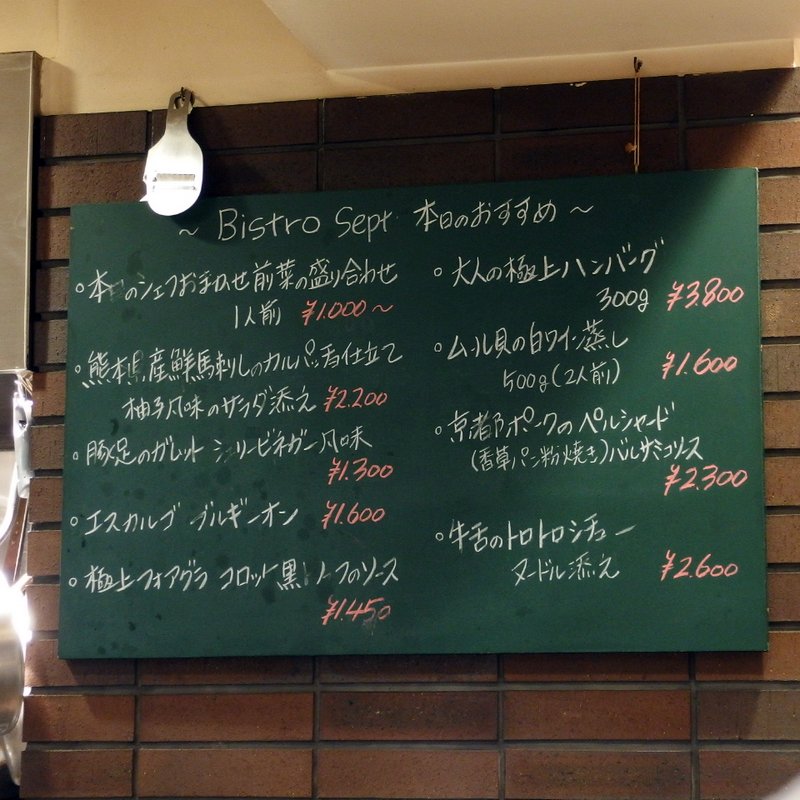 ～ Bistro Sept 本日のおすすめ ～
○本日のシェフおまかせ前菜の盛り合わせ
1人前 ¥1.000～
○熊本県産鮮馬刺しのカルパッチョ仕立て
柚子風味のサラダ添え ¥2.200
○豚足のガレット シェリービネガー風味
¥1.300
○エスカルゴ ブルギニオン ¥1.600
○極上フォアグラ コロッケ黒トリュフのソース
¥1.450
○大人の極上ハンバーグ
300g ¥3.800
○ムール貝の白ワイン蒸し
500g(2人前) ¥1.600
○京都ポークのペルシャード
(香草パン粉焼き)バルサミコソース
¥2.300
○牛舌のトロトロシチュー
ヌードル添え ¥2.600